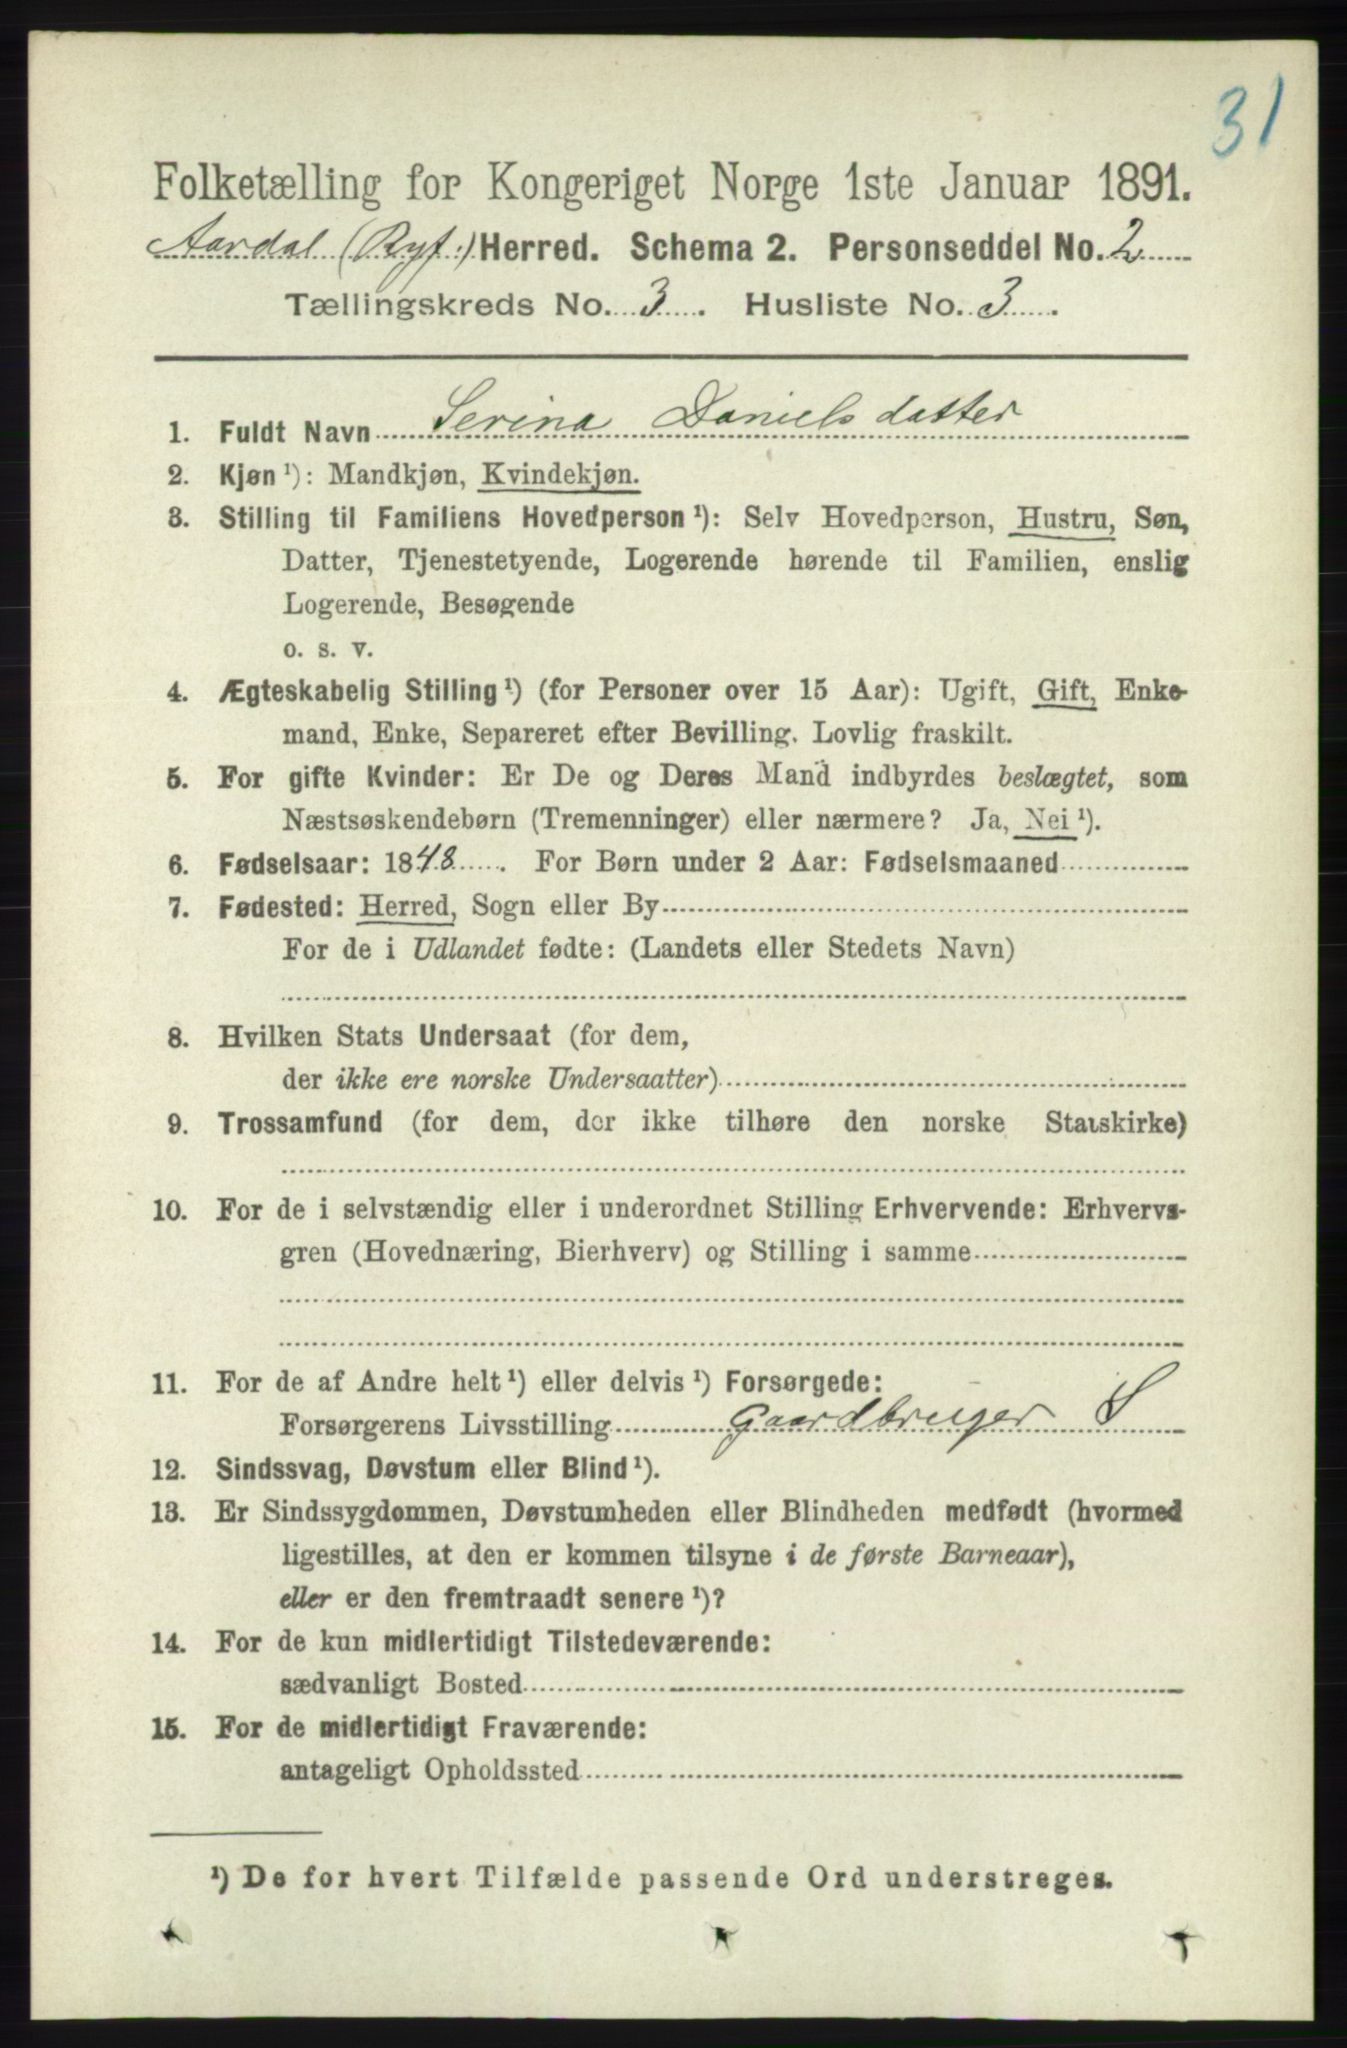 31
Folketælling for Kongeriget Norge 1ste Januar 1891.
Aardal (Ryf.) Herred. Schema 2. Personseddel No. 2
Tællingskreds No. 3. Husliste No. 3.
1. Fuldt Navn Serina Danielsdatter
2. Kjøn ¹): Mandkjøn, Kvindekjøn.
3. Stilling til Familiens Hovedperson ¹): Selv Hovedperson, Hustru, Søn,
Datter, Tjenestetyende, Logerende hørende til Familien, enslig
Logerende, Besøgende
o. s. v.
4. Ægteskabelig Stilling ¹) (for Personer over 15 Aar): Ugift, Gift, Enke-
mand, Enke, Separeret efter Bevilling. Lovlig fraskilt.
5. For gifte Kvinder: Er De og Deres Mand indbyrdes beslægtet, som
Næstsøskendebørn (Tremenninger) eller nærmere? Ja, Nei ¹).
6. Fødselsaar: 1848. For Børn under 2 Aar: Fødselsmaaned
7. Fødested: Herred, Sogn eller By
For de i Udlandet fødte: (Landets eller Stedets Navn)
8. Hvilken Stats Undersaat (for dem,
der ikke ere norske Undersaatter)
9. Trossamfund (for dem, der ikke tilhøre den norske Statskirke)
10. For de i selvstændig eller i underordnet Stilling Erhvervende: Erhvervs-
gren (Hovednæring, Bierhverv) og Stilling i samme
11. For de af Andre helt ¹) eller delvis ¹) Forsørgede:
Forsørgerens Livsstilling Gaardbruger S
12. Sindssvag, Døvstum eller Blind ¹).
13. Er Sindssygdommen, Døvstumheden eller Blindheden medfødt (hvormed
ligestilles, at den er kommen tilsyne i de første Barneaar),
eller er den fremtraadt senere ¹)?
14. For de kun midlertidigt Tilstedeværende:
sædvanligt Bosted
15. For de midlertidigt Fraværende:
antageligt Opholdssted
¹) De for hvert Tilfælde passende Ord understreges.